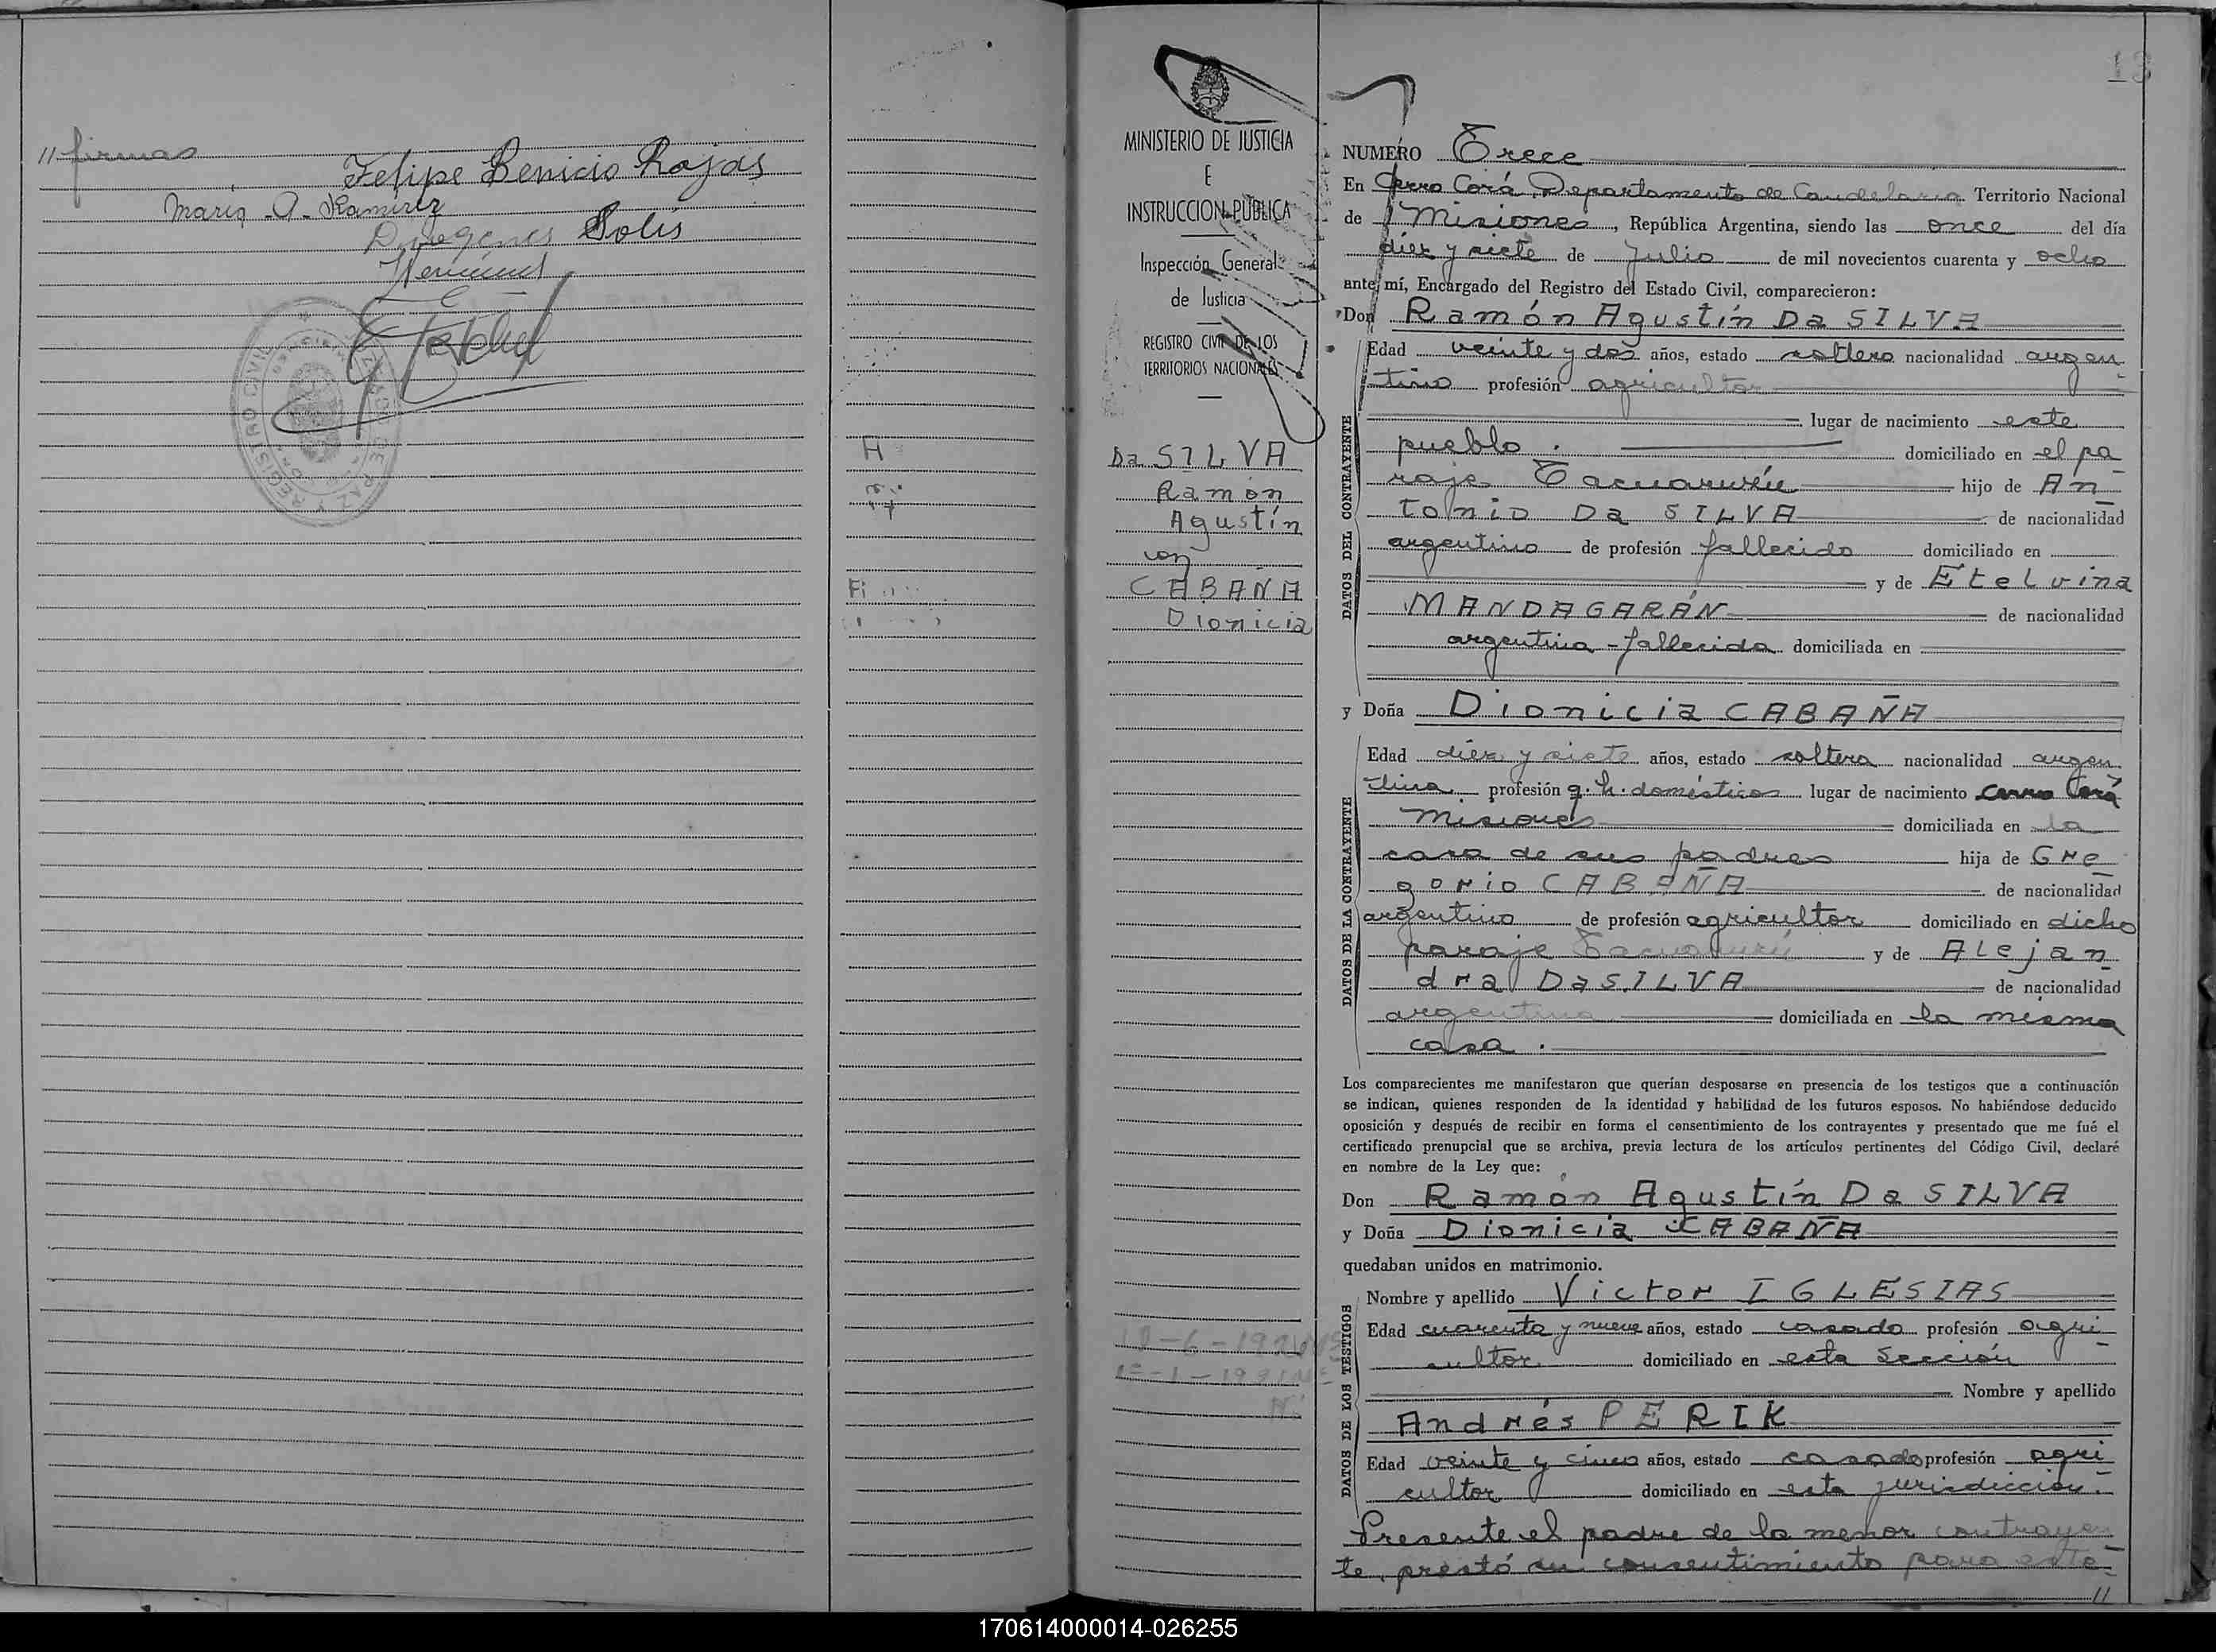 // firmas
Felipe Benicio Rojas
Maria A. Ramirez
Diogenes Solis
REGISTRO CIVIL
JUZGADO DE PAZ Y
13
MINISTERIO DE JUSTICIA
E
INSTRUCCION PUBLICA
Inspección General
de Justicia
REGISTRO CIVIL DE LOS
TERRITORIOS NACIONALES
Da SILVA
Ramón
Agustín
con
CABAÑA
Dionicia
NUMERO Trece
En Cerro Corá, Departamento de Candelaria Territorio Nacional
de Misiones, República Argentina, siendo las once del día
diez y siete de Julio de mil novecientos cuarenta y ocho
ante mí, Encargado del Registro del Estado Civil, comparecieron:
Don Ramón Agustín Da SILVA
DATOS DEL CONTRAYENTE
Edad veinte y dos años, estado soltero nacionalidad argen
tino profesión agricultor
lugar de nacimiento este
pueblo. domiciliado en el pa
raje Tacuaruzú hijo de An
tonio Da SILVA de nacionalidad
argentino de profesión fallecido domiciliado en
y de Etelvina
MANDAGARÁN de nacionalidad
argentina - fallecida domiciliada en
y Doña Dionicia CABAÑA
DATOS DE LA CONTRAYENTE
Edad diez y siete años, estado soltera nacionalidad argen
tina profesión q. h. domésticos lugar de nacimiento Cerro Corá
Misiones domiciliada en la
casa de sus padres hija de Gre
gorio CABAÑA de nacionalidad
argentino de profesión agricultor domiciliado en dicho
paraje y de Alejan
dra Da SILVA de nacionalidad
argentina domiciliada en la misma
casa.
Los comparecientes me manifestaron que querían desposarse en presencia de los testigos que a continuación
se indican, quienes responden de la identidad y habilidad de los futuros esposos. No habiéndose deducido
oposición y después de recibir en forma el consentimiento de los contrayentes y presentado que me fué el
certificado prenupcial que se archiva, previa lectura de los artículos pertinentes del Código Civil, declaré
en nombre de la Ley que:
Don Ramón Agustín Da SILVA
y Doña Dionicia CABAÑA
quedaban unidos en matrimonio.
DATOS DE LOS TESTIGOS
Nombre y apellido Victor IGLESIAS
Edad cuarenta y nueve años, estado casado profesión agri
cultor domiciliado en esta Sección
Nombre y apellido
Andrés PERIK
Edad veinte y cinco años, estado casado profesión agri
cultor domiciliado en esta jurisdicción.
Presente el padre de la menor contrayen
te, prestó su consentimiento para este
//
170614000014-026255